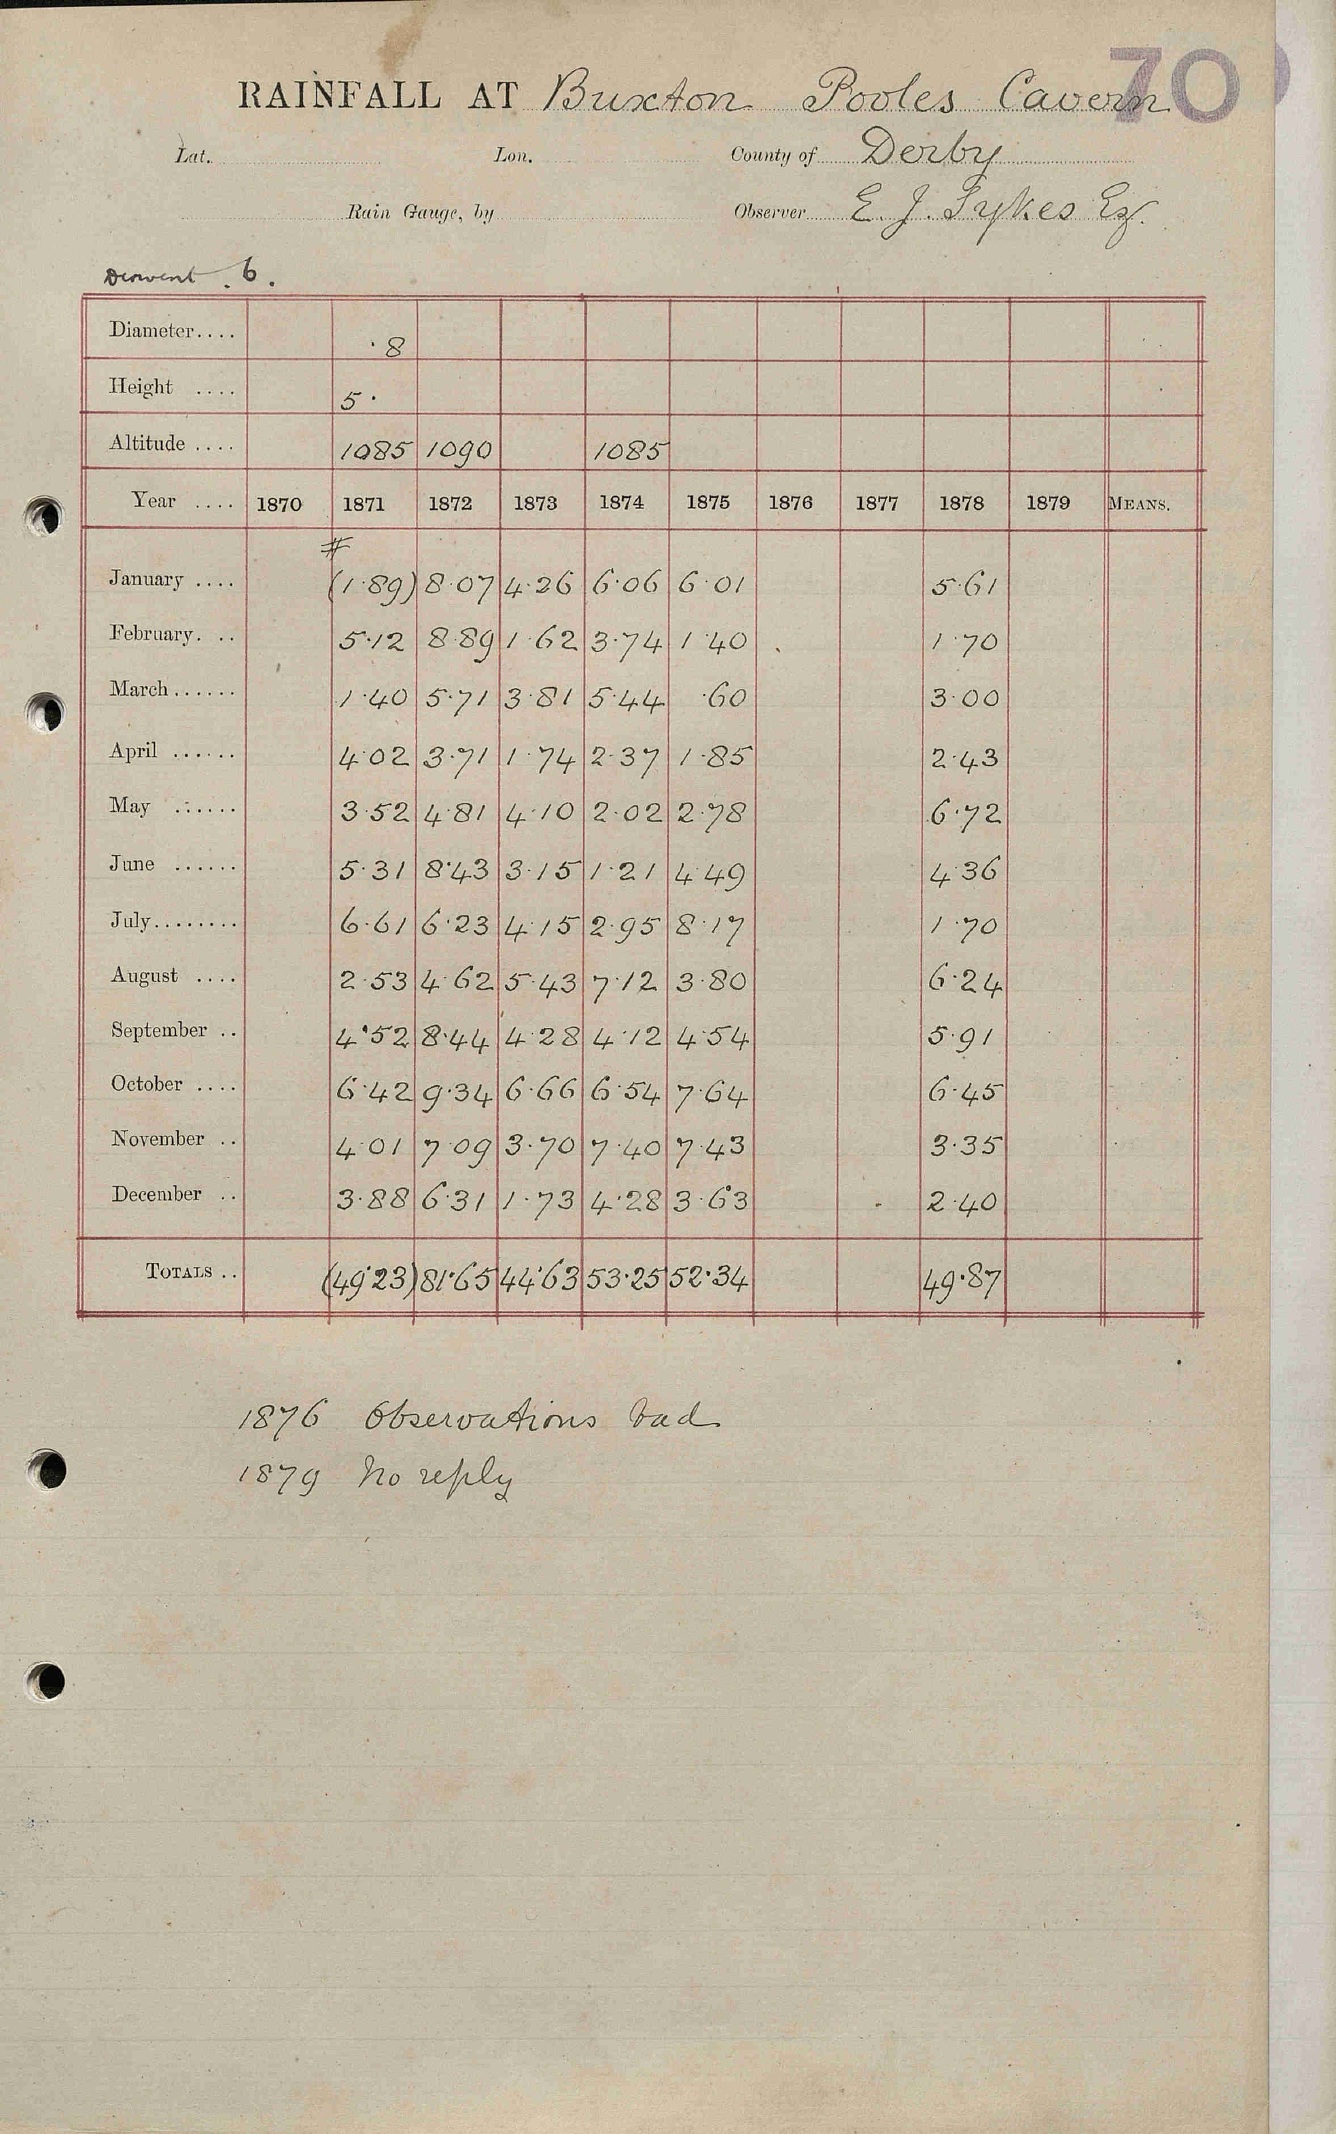 70
RAINFALL AT Buxton Pooles Cavern
Lat. Lon. County of Derby
Rain Gauge, by Observer E. J. Sykes Esq.
Derwent . 6 .
Diameter.... ·8
Height .... 5·
Altitude .... 1085 1090 1085
Year .... 1870 1871 1872 1873 1874 1875 1876 1877 1878 1879 MEANS.
#
January .... (1·89) 8·07 4·26 6·06 6·01 5·61
February. .. 5·12 8·89 1·62 3·74 1·40 1·70
March...... 1·40 5·71 3·81 5·44 ·60 3·00
April ...... 4·02 3·71 1·74 2·37 1·85 2·43
May ...... 3·52 4·81 4·10 2·02 2·78 6·72
June ...... 5·31 8·43 3·15 1·21 4·49 4·36
July........ 6·61 6·23 4·15 2·95 8·17 1·70
August .... 2·53 4·62 5·43 7·12 3·80 6·24
September .. 4·52 8·44 4·28 4·12 4·54 5·91
October .... 6·42 9·34 6·66 6·54 7·64 6·45
November .. 4·01 7·09 3·70 7·40 7·43 3·35
December .. 3·88 6·31 1·73 4·28 3·63 2·40
TOTALS .. (49·23) 81·65 44·63 53·25 52·34 49·87
1876 Observations bad
1879 No reply